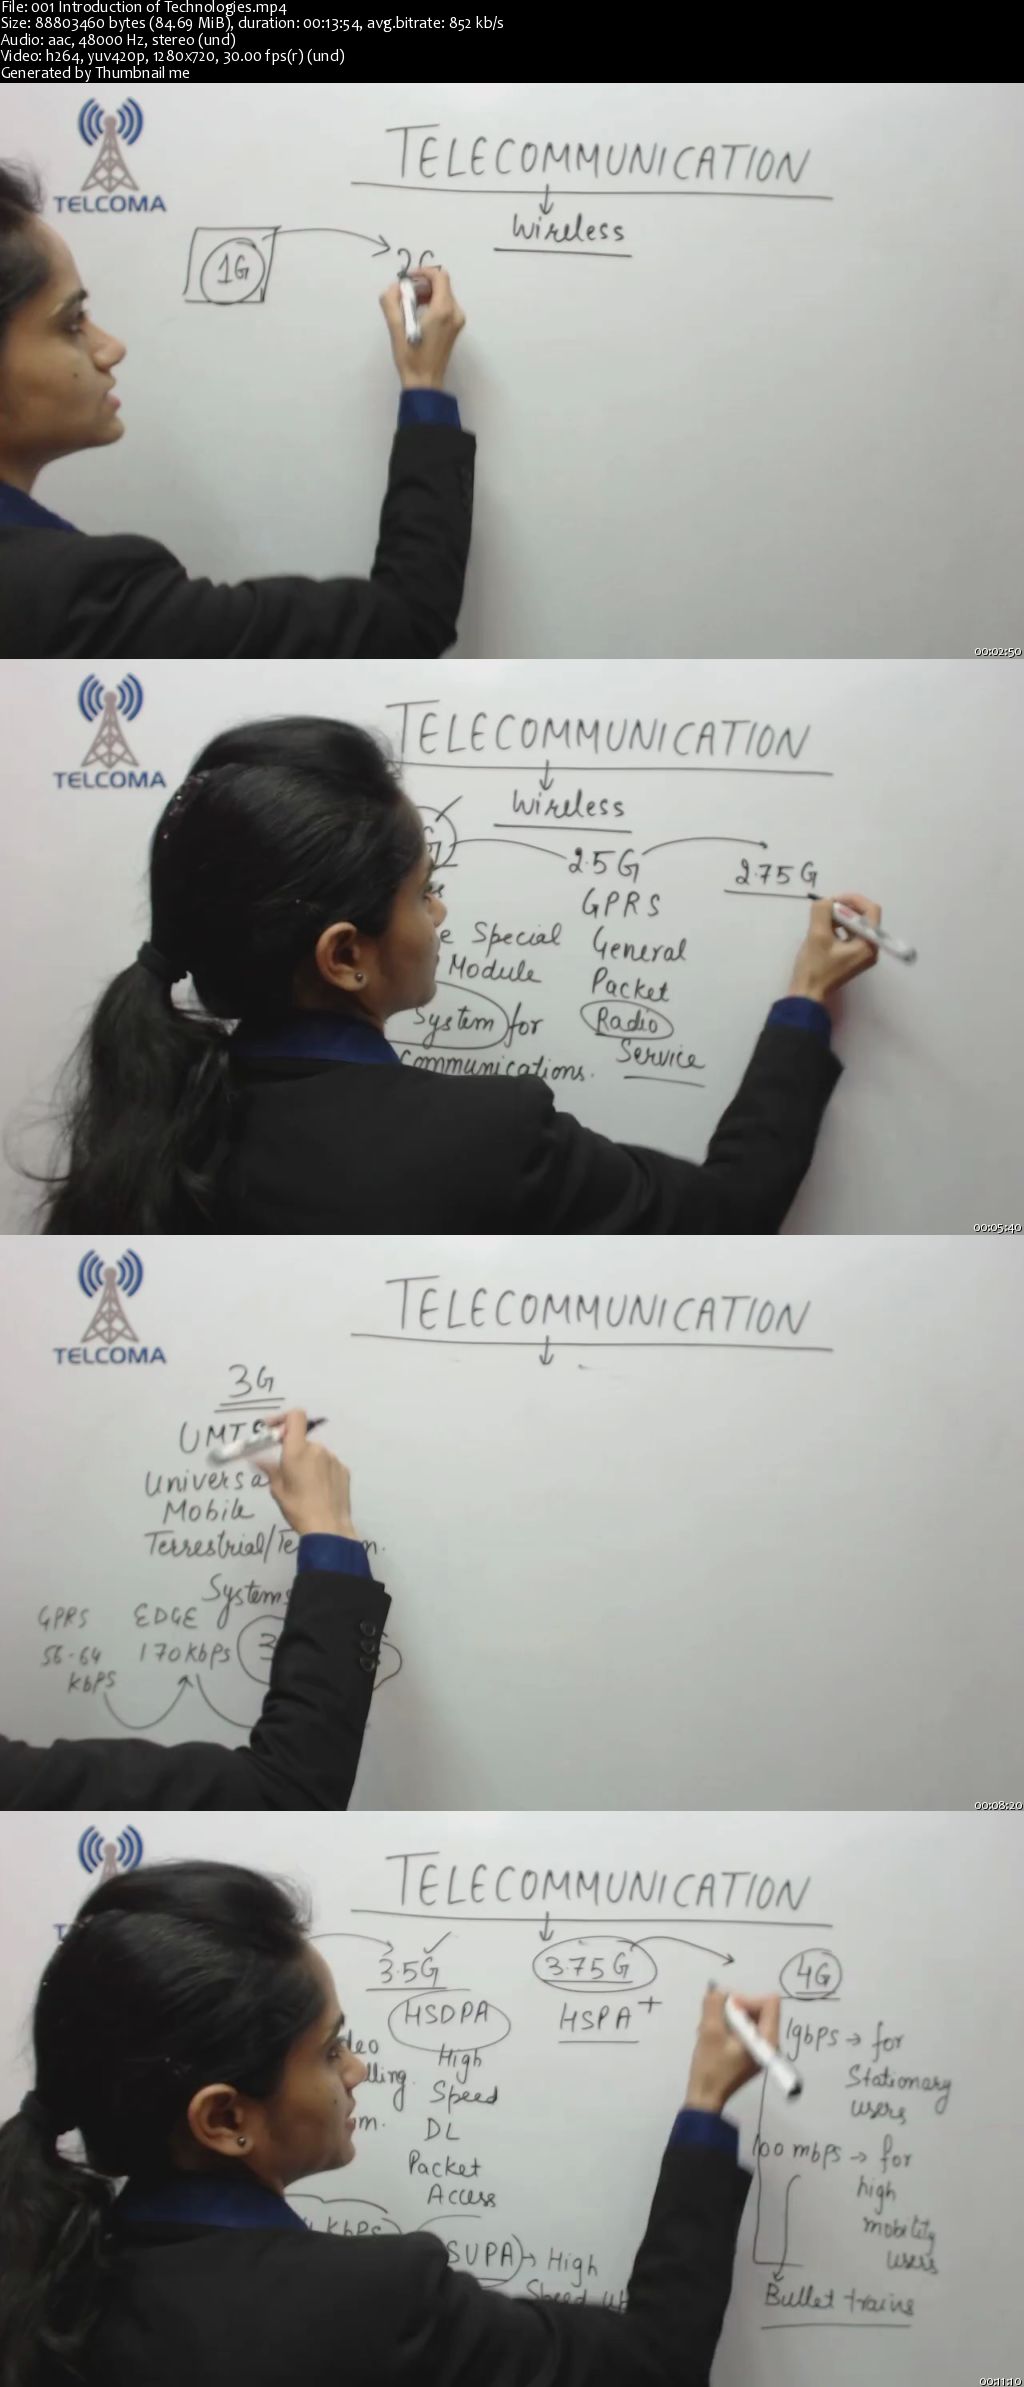 File: 001 Introduction of Technologies.mp4
Size: 88803460 bytes (84.69 MiB), duration: 00:13:54, avg.bitrate: 852 kb/s
Audio: aac, 48000 Hz, stereo (und)
Video: h264, yuv420p, 1280x720, 30.00 fps(r) (und)
Generated by Thumbnail me
TELCOMA
TELECOMMUNICATION
Wireless
1G
2G
00:02:50
TELCOMA
TELECOMMUNICATION
Wireless
2.5G
2.75G
GPRS
Special
General
Module
Packet
System for
Radio
Communications.
Service
00:05:40
TELCOMA
TELECOMMUNICATION
3G
UMTS
Universa
Mobile
Terrestrial/Te
Systems
GPRS
EDGE
56-64
170kbps
kbps
00:08:20
TELECOMMUNICATION
3.5G
3.75G
4G
HSDPA
HSPA+
1gbps → for
High
Stationary
Speed
users
DL
100 mbps → for
Packet
high
Access
mobility
kbps
users
SUPA → High
Speed
Bullet trains
00:11:10